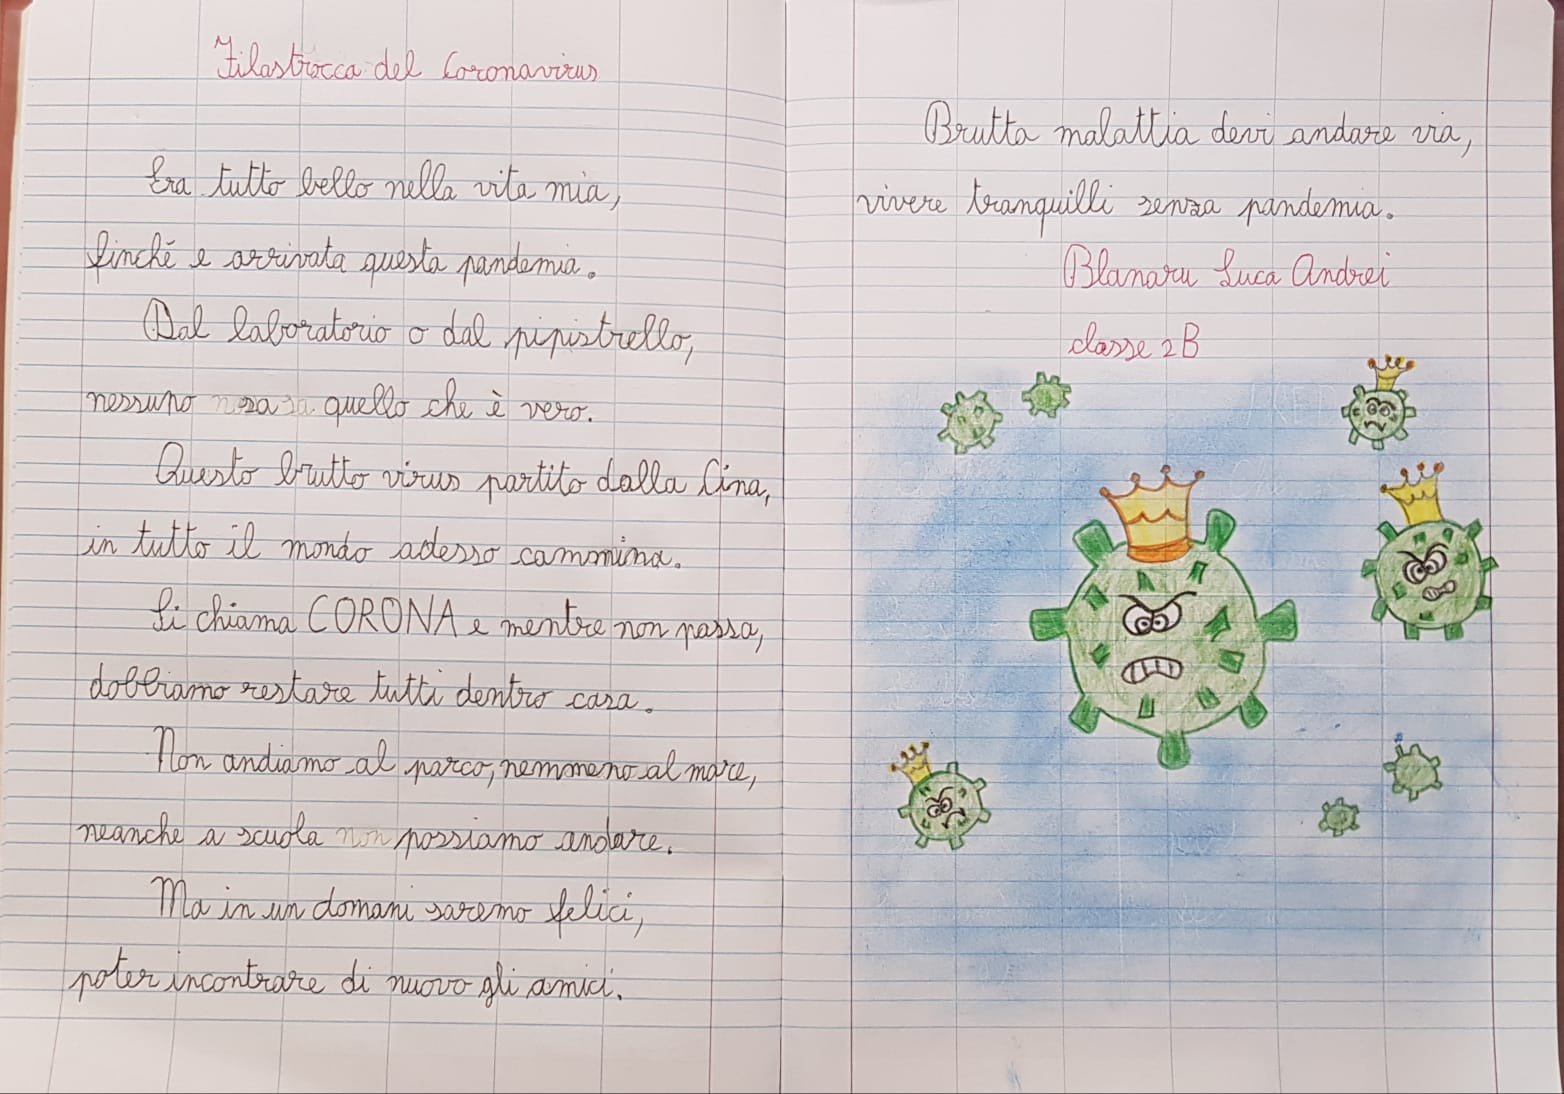 Filastrocca del Coronavirus
Era tutto bello nella vita mia,
finché e arrivata questa pandemia.
Dal laboratorio o dal pipistrello,
nessuno sa quello che è vero.
Questo brutto virus partito dalla Cina,
in tutto il mondo adesso cammina.
Si chiama CORONA e mentre non passa,
dobbiamo restare tutti dentro casa.
Non andiamo al parco, nemmeno al mare,
neanche a scuola non possiamo andare.
Ma in un domani saremo felici,
poter incontrare di nuovo gli amici.
Brutta malattia devi andare via,
vivere tranquilli senza pandemia.
Blanaru Luca Andrei
classe 2B